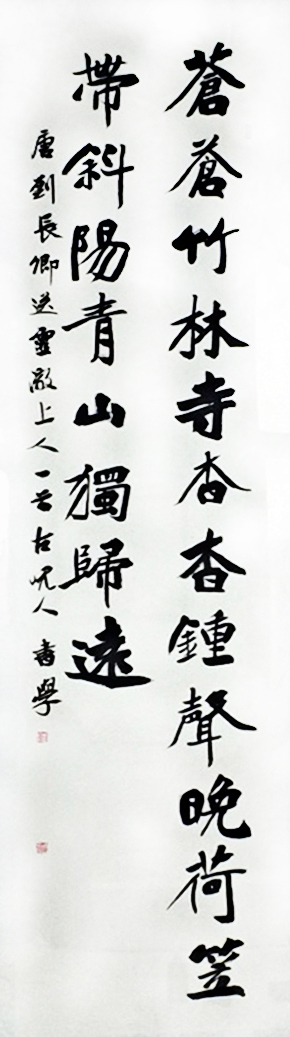 蒼蒼竹林寺杳杳鍾聲晚荷笠
帶斜陽青山獨歸遠
唐劉長卿送靈澈上人一首